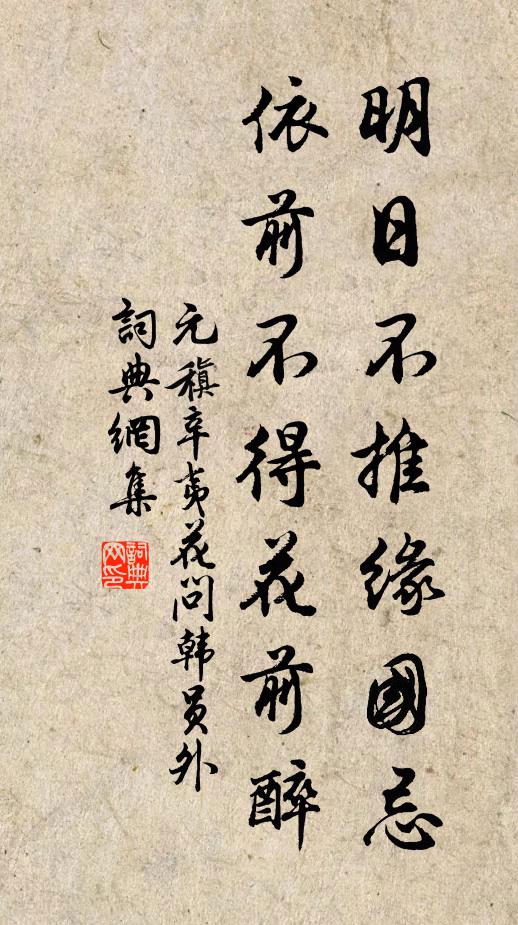 明日不推緣國忌
依前不得花前醉
元稹辛夷花問韩員外
詞典網集
詞典网印